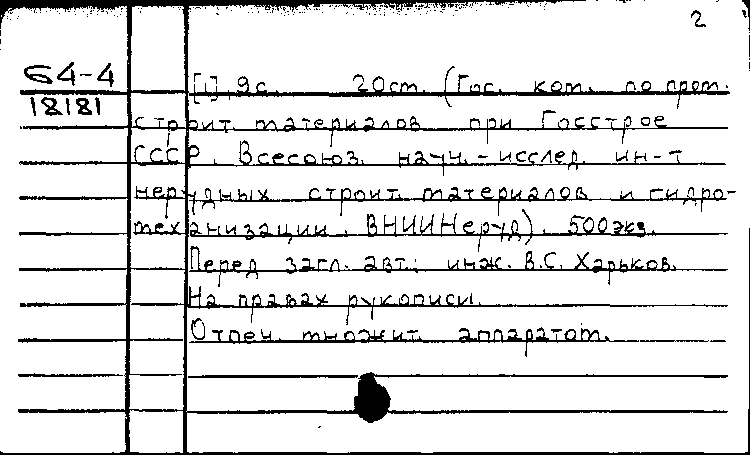 2
64-4
18181
[1], 9с. 20см. (Гос. ком. по пром.
строит. материалов при Госстрое
СССР. Всесоюз. науч.-исслед. ин-т
нерудных строит. материалов и гидро-
механизации. ВНИИНеруд). 500экз.
Перед загл. авт.: инж. В.С. Харьков.
На правах рукописи.
Отпеч. множит. аппаратом.